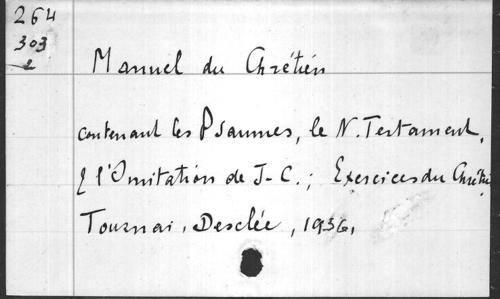 264
303
2
Manuel du Chrétien
contenant les Psaumes, le N. Testament,
& l'Imitation de J-C.; Exercices du Chrétien
Tournai, Desclée, 1936,